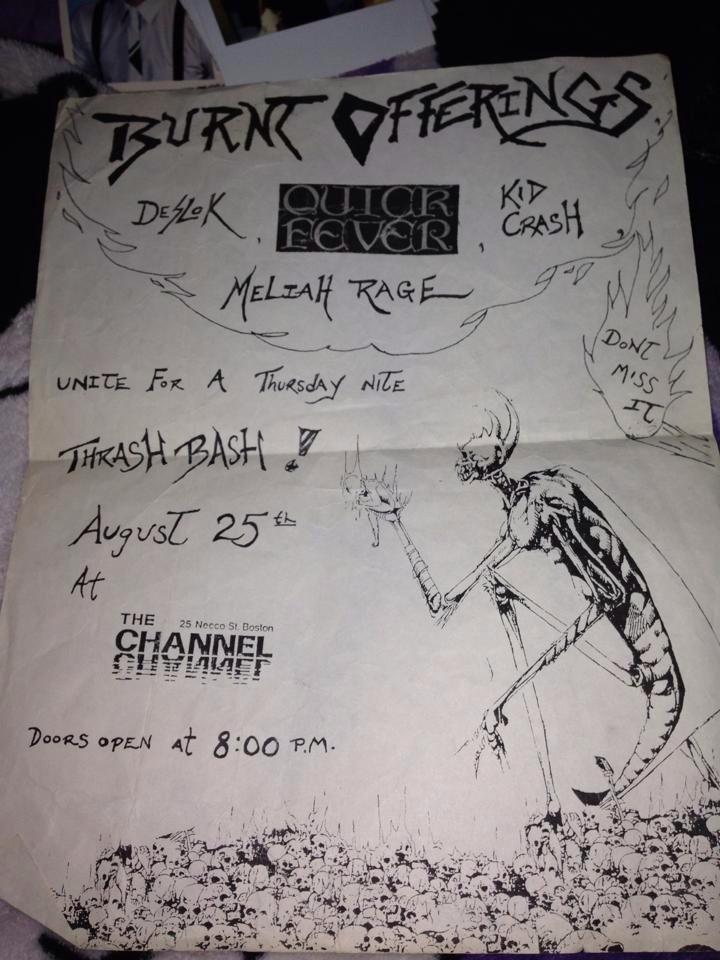 BURNT OFFERINGS
DESLOK , QUICK FEVER , KID CRASH
MELIAH RAGE
DONT
MISS
IT
UNITE FOR A THURSDAY NITE
THRASH BASH !
AUGUST 25th
At
THE 25 Necco St. Boston
CHANNEL
DOORS OPEN At 8:00 P.M.